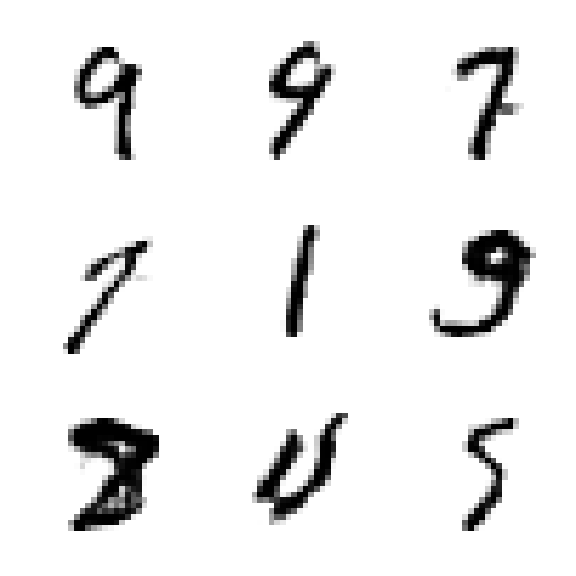 9 9 7
7 1 9
8 5